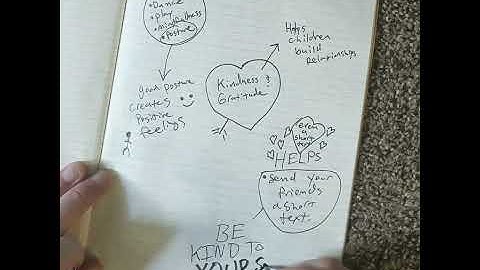 • Dance
• play
• mindfullness
• posture
good posture
creates
positive
feelings
Kindness &
Gratitude
Helps
children
build
relationships
even
a
short
text
HELPS
• Send your
friends
a short
text.
BE
KIND TO
YOURS